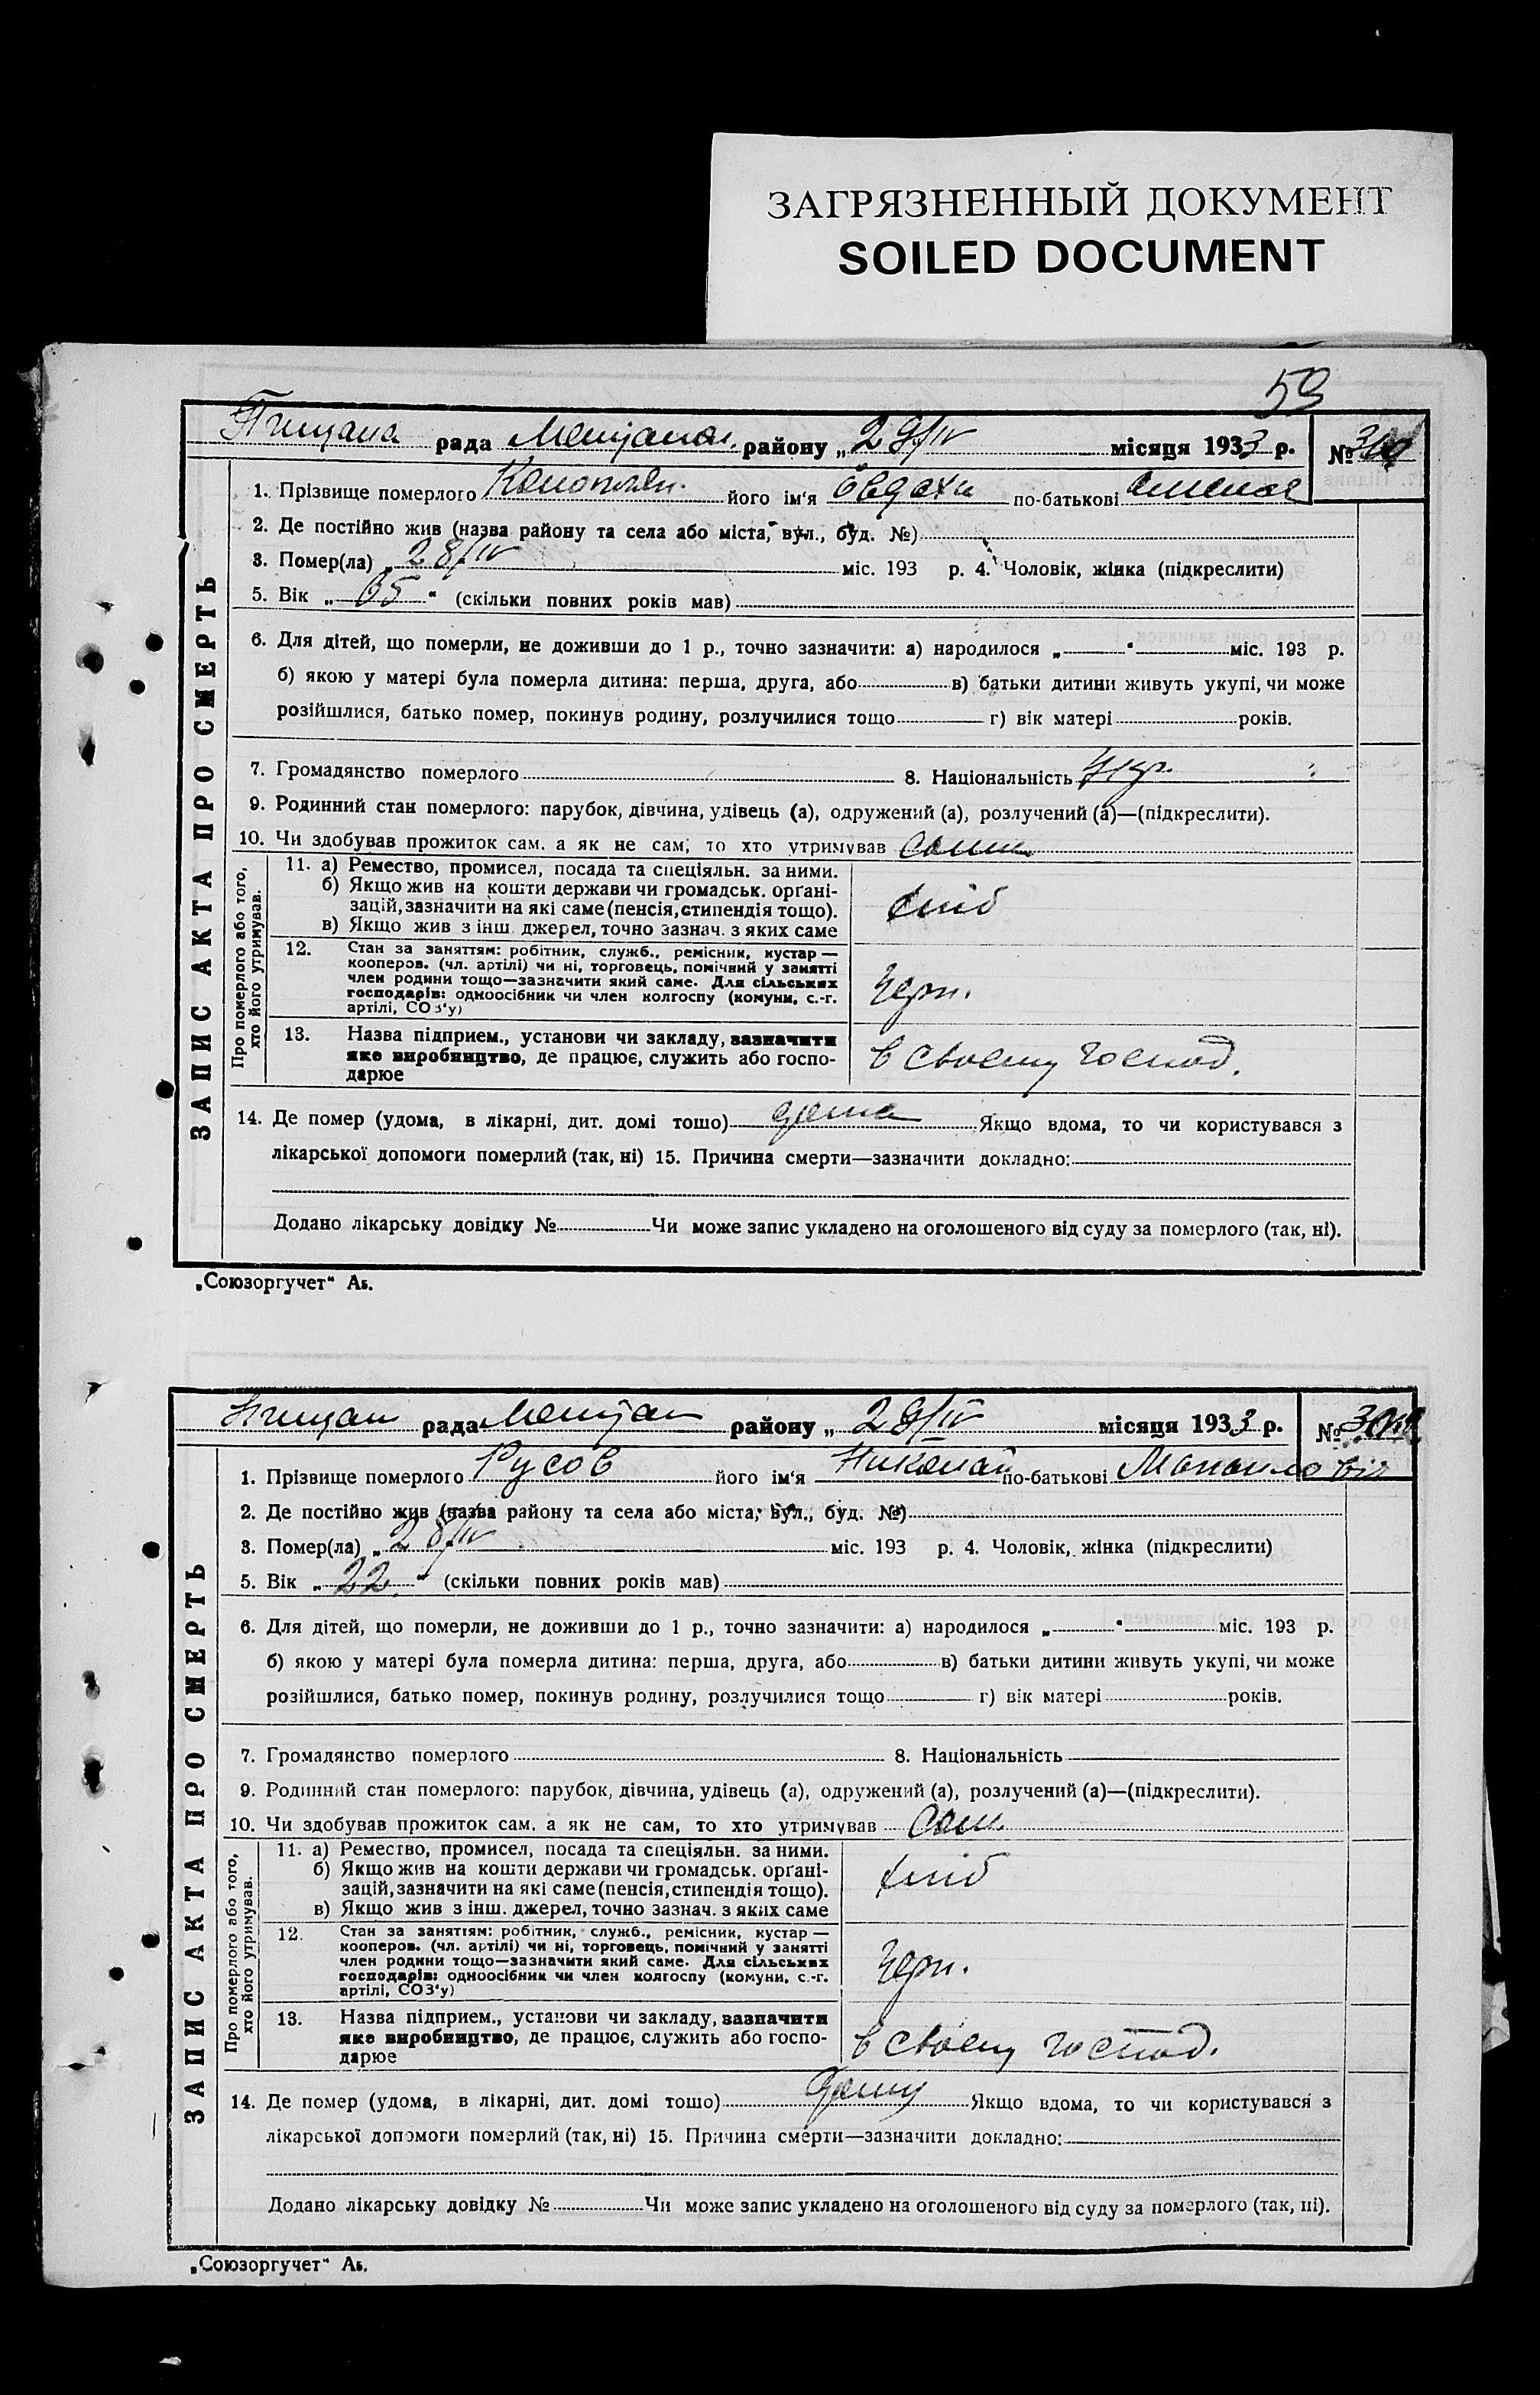 ЗАГРЯЗНЕННЫЙ ДОКУМЕНТ
SOILED DOCUMENT
59
рада району „ 29/IV місяця 1933 р. №
ЗАПИС АКТА ПРО СМЕРТЬ
1. Прізвище померлого його ім'я по-батькові
2. Де постійно жив (назва району та села або міста, вул., буд. №)
3. Помер(ла) „ 28/IV міс. 193 р. 4. Чоловік, жінка (підкреслити)
5. Вік „ 65 “ (скільки повних років мав)
6. Для дітей, що померли, не доживши до 1 р., точно зазначити: а) народилося „ “ міс. 193 р.
б) якою у матері була померла дитина: перша, друга, або в) батьки дитини живуть укупі, чи може
розійшлися, батько помер, покинув родину, розлучилися тощо г) вік матері років.
7. Громадянство померлого 8. Національність Укр.
9. Родинний стан померлого: парубок, дівчина, удівець (а), одружений (а), розлучений (а)—(підкреслити).
10. Чи здобував прожиток сам, а як не сам, то хто утримував
Про померлого або того,
хто його утримував.
11. а) Ремество, промисел, посада та спеціяльн. за ними.
б) Якщо жив на кошти держави чи громадськ. орґані-
зацій, зазначити на які саме (пенсія, стипендія тощо).
в) Якщо жив з інш. джерел, точно зазнач. з яких саме
хліб
12. Стан за заняттям: робітник, служб., ремісник, кустар —
кооперов. (чл. артілі) чи ні, торговець, помічний у занятті
член родини тощо—зазначити який саме. Для сільських
господарів: одноосібник чи член колгоспу (комуни, с.-г.
артілі, СОЗ'у)
13. Назва підприєм., установи чи закладу, зазначити
яке виробництво, де працює, служить або госпо-
дарює
в своему господ.
14. Де помер (удома, в лікарні, дит. домі тощо) дома Якщо вдома, то чи користувався з
лікарської допомоги померлий (так, ні) 15. Причина смерти—зазначити докладно:
Додано лікарську довідку № Чи може запис укладено на оголошеного від суду за померлого (так, ні).
„Союзоргучет“ Аь.
рада району „ 29/IV місяця 1933 р. №
ЗАПИС АКТА ПРО СМЕРТЬ
1. Прізвище померлого Русов його ім'я Николай по-батькові
2. Де постійно жив (назва району та села або міста, вул., буд. №)
3. Помер(ла) „ 28/IV міс. 193 р. 4. Чоловік, жінка (підкреслити)
5. Вік „ 22. “ (скільки повних років мав)
6. Для дітей, що померли, не доживши до 1 р., точно зазначити: а) народилося „ “ міс. 193 р.
б) якою у матері була померла дитина: перша, друга, або в) батьки дитини живуть укупі, чи може
розійшлися, батько помер, покинув родину, розлучилися тощо г) вік матері років.
7. Громадянство померлого 8. Національність
9. Родинний стан померлого: парубок, дівчина, удівець (а), одружений (а), розлучений (а)—(підкреслити).
10. Чи здобував прожиток сам, а як не сам, то хто утримував Сам.
Про померлого або того,
хто його утримував.
11. а) Ремество, промисел, посада та спеціяльн. за ними.
б) Якщо жив на кошти держави чи громадськ. орґані-
зацій, зазначити на які саме (пенсія, стипендія тощо).
в) Якщо жив з інш. джерел, точно зазнач. з яких саме
хліб
12. Стан за заняттям: робітник, служб., ремісник, кустар —
кооперов. (чл. артілі) чи ні, торговець, помічний у занятті
член родини тощо—зазначити який саме. Для сільських
господарів: одноосібник чи член колгоспу (комуни, с.-г.
артілі, СОЗ'у)
13. Назва підприєм., установи чи закладу, зазначити
яке виробництво, де працює, служить або госпо-
дарює
в своему господ.
14. Де помер (удома, в лікарні, дит. домі тощо) Якщо вдома, то чи користувався з
лікарської допомоги померлий (так, ні) 15. Причина смерти—зазначити докладно:
Додано лікарську довідку № Чи може запис укладено на оголошеного від суду за померлого (так, ні).
„Союзоргучет“ Аь.